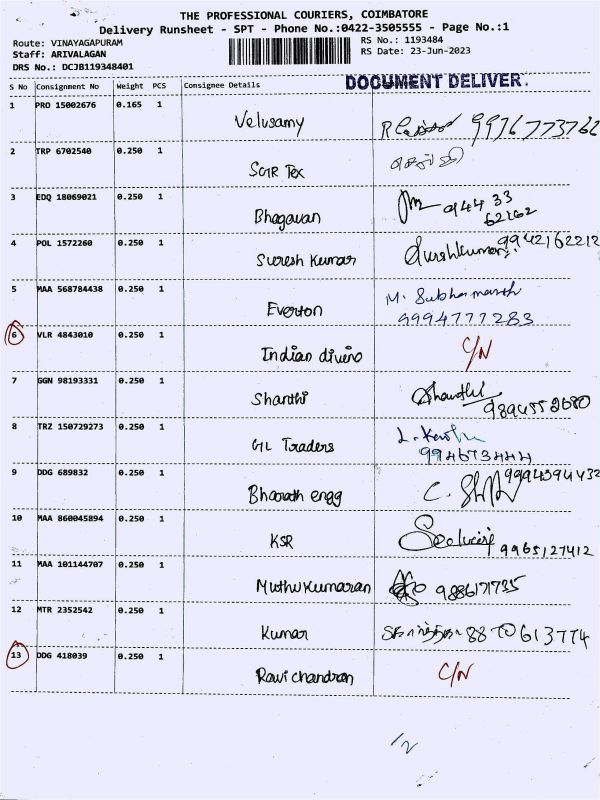 THE PROFESSIONAL COURIERS, COIMBATORE
Delivery Runsheet - SPT - Phone No.:0422-3505555 - Page No.:1
Route: VINAYAGAPURAM RS No.: 1193484
Staff: ARIVALAGAN RS Date: 23-Jun-2023
DRS No.: DCJB119348401
DOCUMENT DELIVER.
S No Consignment No Weight PCS Consignee Details
1 PRO 15002676 0.165 1
Velusamy
2 TRP 6702540 0.250 1
Tex
3 EDQ 18069021 0.250 1
Bhagavan 94433
62162
4 POL 1572260 0.250 1
Suresh Kumar 9942162212
5 MAA 568784438 0.250 1
Everton
9994777283
6 VLR 4843010 0.250 1
Indian divino C/N
7 GGN 98193331 0.250 1
Shanthi Shanthi
8 TRZ 150729273 0.250 1
GL Traders
9 DDG 689832 0.250 1
Bharath engg 9994394432
10 MAA 860045894 0.250 1
KSR 9965127412
11 MAA 101144707 0.250 1
Muthukumaran 9886171735
12 MTR 2352542 0.250 1
Kumar 8870613774
13 DDG 418039 0.250 1
Ravichandran C/N
1/2